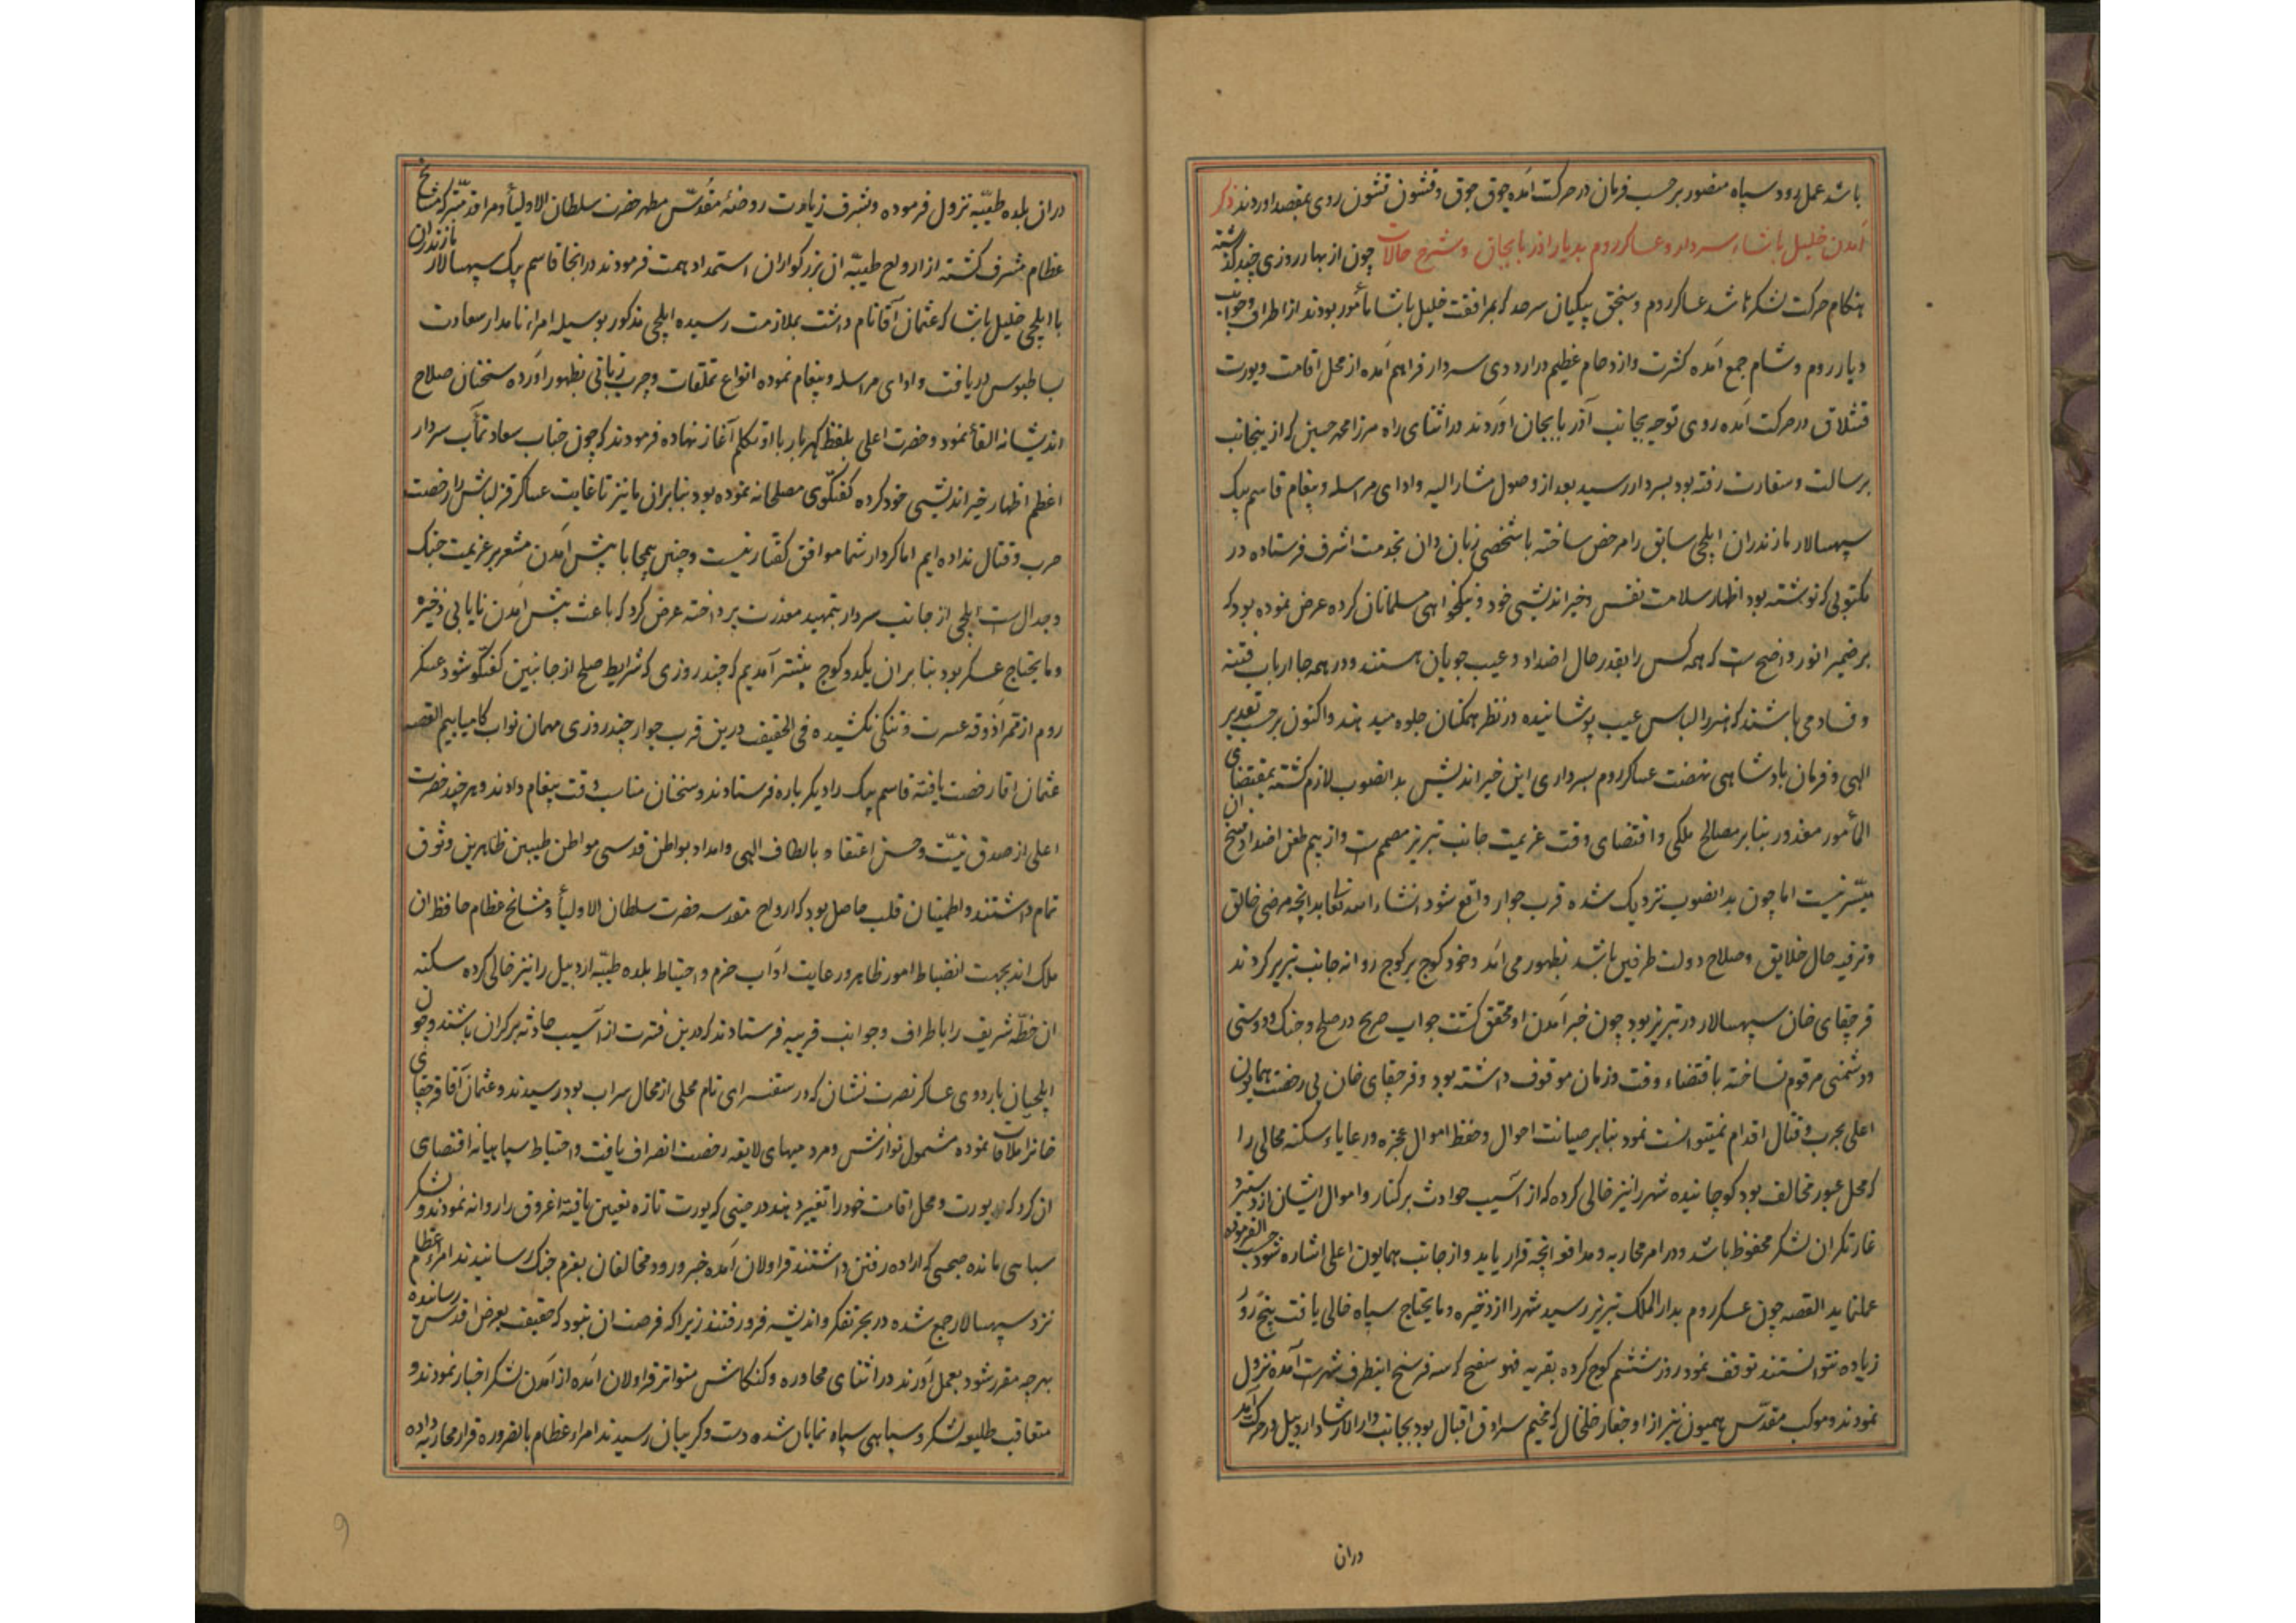 باشد عمل رود سپاه منصور بر حسب فرمان در حرکت آمده جوق جوق و قشون قشون روی بمقصد اوردند ذکر
آمدن خلیل پاشاء سردار و عساکر روم بدیار اذربایجان و شرح حالات چون از بهار روزی چند گذشته
هنکام حرکت لشکرها شد عساکر روم و سنجق بیکیان سرحد که بمرافقت خلیل پاشا مأمور بودند از اطراف و جوانب
دیار روم و شام جمع آمده کثرت و ازدحام عظیم در اردوی سردار فراهم آمده از محل اقامت و یورت
قشلاق در حرکت آمده روی توجه بجانب آذربایجان اوردند در اثنای راه میرزا محمد حسین که از ینجانب
برسالت و سفارت رفته بود بسردار رسید بعد از وصول مشار الیه و ادای مراسله و پیغام قاسم بیک
سپهسالار مازندران ایلچی سابق را مرخص ساخته با شخصی زبان دان بخدمت اشرف فرستاده در
مکتوبی که نوشته بود اظهار سلامت نفس و خیر اندیشی خود و نیکخواهی مسلمانان کرده عرض نموده بود که
بر ضمیر انور واضح است که همه کس را بقدر حال اضداد و عیب جویان هستند و در همه جا ارباب فتنه
و فساد می باشند که هنر را لباس عیب پوشانیده در نظر همکنان جلوه میدهند و اکنون بر حسب تقدیر
الهی و فرمان پادشاهی نهضت عساکر روم بسرداری این خیر اندیش بدانصوب لازم کشته بمقتضای
المأمور معذور بنابر مصالح ملکی و اقتضای وقت عزیمت جانب تبریز مصمم است و از بیم طعن اضداد فسخ ان
میسّر نیست اما چون بدانصوب نزدیک شده قرب جوار واقع شود انشاء الله تعالی انچه مرضی خالق
و ترفیه حال خلایق و صلاح دولت طرفین باشد بظهور می آمد و خود کوج بر کوج روانه جانب تبریز کردند
قرچقای خان سپهسالار در تبریز بود چون خبر آمدن او محقق کشت جواب صریح در صلح و جنک و دوستی
و دشمنی مرقوم نساخته باقتضاء وقت و زمان موقوف داشته بود و قرچقای خان بی رخصت همایون
اعلی بحرب و قتال اقدام نمیتوانست نمود بنابر صیانت احوال و حفظ اموال عجزه و رعایا سکنه محالی را
که محل عبور مخالف بود کوچانیده شهر را نیز خالی کرده که از آسیب حوادث بر کنار و اموال ایشان از دستبرد
غارتکران لشکر محفوظ باشد و در امر محاربه و مدافعه انچه قرار یابد و از جانب همایون اعلی اشاره شود حسب الفرموده
عمل نماید القصه چون عسکر روم بدار الملک تبریز رسید شهر را از ذخیره و مایحتاج سپاه خالی یافت پنج روز
زیاده نتوانستند توقف نمود روز ششم کوج کرده بقریه فهوسفج که سه فرسخ اینطرف شهر است آمده نزول
نمودند و موکب مقدّس همیون نیز از اوجغار خلخال که مخیم سرادق اقبال بود بجانب دار الارشاد اردبیل در حرکت آمد
دران
دران بلده طیّبه نزول فرموده و بشرف زیارت روضهٔ مقدّس مطهر حضرت سلطان الاولیأ و مراقد متبرکه مشایخ
عظام مشرف کشته از ارواح طیبّه ان بزرکواران استمداد همت فرمودند در انجا قاسم بیک سپهسالار مازندران
با ایلچی خلیل پاشا که عثمان آقا نام داشت بملازمت رسیده ایلچی مذکور بوسیله امراء نامدار سعادت
بساطبوس دریافت و ادای مراسله و پیغام نموده انواع تملقات و چرب زبانی بظهور آورده سخنان صلاح
اندیشانه القأ نمود و حضرت اعلی بلفظ کهربار با او تکلم آغاز نهاده فرمودند که چون جناب سعادتمآب سردار
اعظم اظهار خیر اندیشی خود کرده کفتکوی مصلحانه نموده بود بنابران ما نیز تا غایت عساکر قزلباش را رخصت
حرب و قتال نداده ایم اما کردار شما موافق کفتار نیست و چنین بیمحابا پیش آمدن مشعر بر عزیمت جنک
و جدال است ایلچی از جانب سردار بتمهید معذرت پرداخته عرض کرد که باعث پیش آمدن نایابی ذخیره
و مایحتاج عسکر بود بنابر ان یکدو کوج پیشتر آمدیم که چند روزی که شرایط صلح از جانبین کفتکو شود عسکر
روم از ممر آذوقه عسرت و تنکی نکشیده فی الحقیقت درین قرب جوار چند روزی مهمان نواب کامیابیم القصه
عثمان اقا رخصت یافته قاسم بیک را دیکر باره فرستادند و سخنان مناسب وقت پیغام دادند و هر چند حضرت
اعلی از صدق نیّت و حسن اعتقاد بالطاف الهی و امداد بواطن قدسی مواطن طیبین طاهرین وثوق
تمام داشتند و اطمینان قلب حاصل بود که ارواح مقدسه حضرت سلطان الاولیأ و مشایخ عظام حافظ ان
ملک اند بجهت انضباط امور ظاهر و رعایت اداب حزم و احتیاط بلده طیّبه اردبیل را نیز خالی کرده سکنه
ان خطّه شریف را باطراف و جوانب قریبه فرستادند که درین فترت از آسیب حادثه بر کران باشند و چون
ایلچیان باردوی عساکر نصرت نشان که در سقنسرای نام محلی از محال سراب بود رسیدند و عثمان آقا قرچقای
خانرا ملاقات نموده مشمول نوازش و مردمیهای لایقه رخصت انصراف یافت و احتیاط سپاهیانه اقتضای
ان کرد که یورت و محل اقامت خود را تغییر دهند در حینی که یورت تازه تعیین یافته اغروق را روانه نمودند و لشکر
سپاهی مانده صبحی که اراده رفتن داشتند قراولان آمده خبر ورود مخالفان بعزم جنک رسانیدند امراء عظام
نزد سپهسالار جمع شده در بحر تفکر و اندیشه فرو رفتند زیرا که فرصت ان نبود که حقیقت بعرض اقدس رسانیده
بهرچه مقرر شود بعمل آورند در اثنای محاوره و کنکاش متواتر قراولان آمده از آمدن لشکر اخبار نمودند و
متعاقب طلیعه لشکر و سیاهی سپاه نمایان شده دست و کریبان رسیدند امراء عظام بالضروره قرار محاربه داده